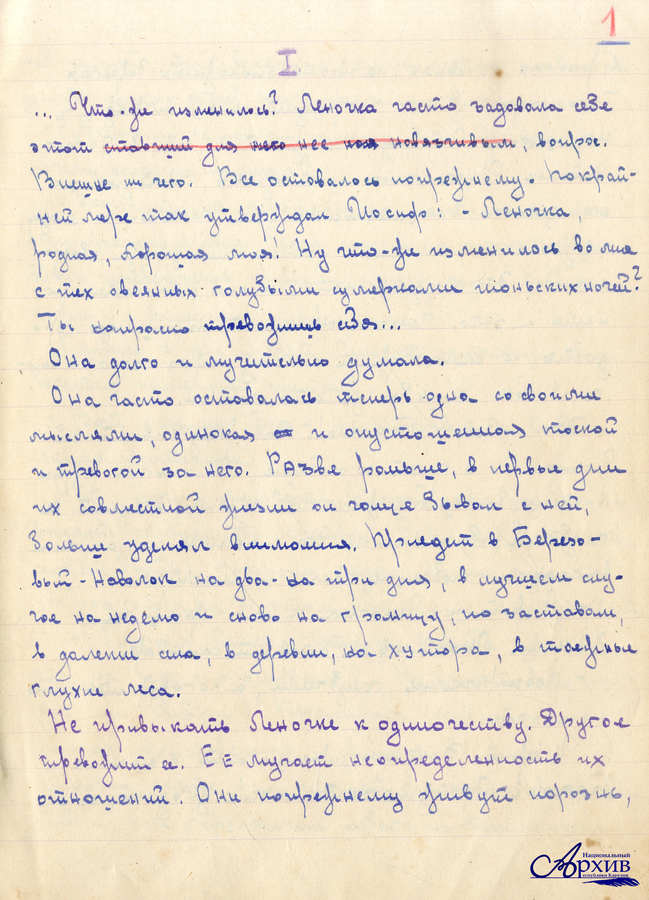 1
I
... Что-же изменилось? Леночка часто задавала себе
этот ставший для него нее ная навязчивым, вопрос.
Внешне ни чего. Все оставалось попрежнему. По край-
ней мере так утверждал Иосиф: - Леночка,
родная, хорошая моя! Ну что-же изменилось во мне
с тех овеянных голубыми сумерками июньских ночей?
Ты напрасно тревожишь себя...
Она долго и мучительно думала.
Она часто оставалась теперь одна со своими
мыслями, одинокая и опустошенная тоской
и тревогой за него. Разве раньше, в первые дни
их совместной жизни он чаще бывал с ней,
больше уделял внимания. Приедет в Березо-
вый-Наволок на два-на три дня, в лучшем слу-
чае на неделю и снова на границу, по заставам,
в далекие села, в деревни, на хутора, в таежные
глухие леса.
Не привыкать Леночке к одиночеству. Другое
тревожит ее. Ее мучает неопределенность их
отношений. Они попрежнему живут порознь,
Национальный
Архив
республики Карелия